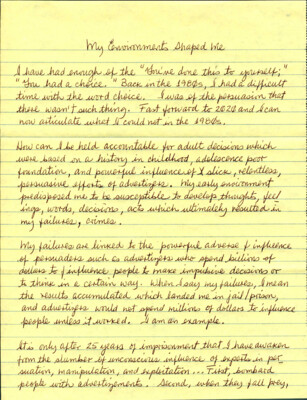 My Environments Shaped Me
I have had enough of the "You've done this to yourself,"
"You had a choice." Back in the 1980s, I had a difficult
time with the word choice. I was of the persuasion that
there wasn't such thing. Fast forward to 2020 and I can
now articulate what I could not in the 1980s.
How can I be held accountable for adult decisions which
were based on a history in childhood, adolescence poor
foundation, and powerful influence of slick, relentless,
persuasive efforts of advertizers. My early environment
predisposed me to be susceptible to develop thoughts, feel
ings, words, decisions, acts which ultimately resulted in
my failures, crimes.
My failures are linked to the powerful adverse influence
of persuaders such as advertizers who spend billions of
dollars to influence people to make impulsive decisions or
to think in a certain way. When I say my failures, I mean
the results accumulated which landed me in jail/prison,
and advertizers would not spend millions of dollars to influence
people unless it worked. I am an example.
It is only after 25 years of imprisonment that I have awaken
from the slumber of unconscious influence of experts in per
suation, manipulation, and exploitation... First, bombard
people with advertizements. Second, when they fall prey,